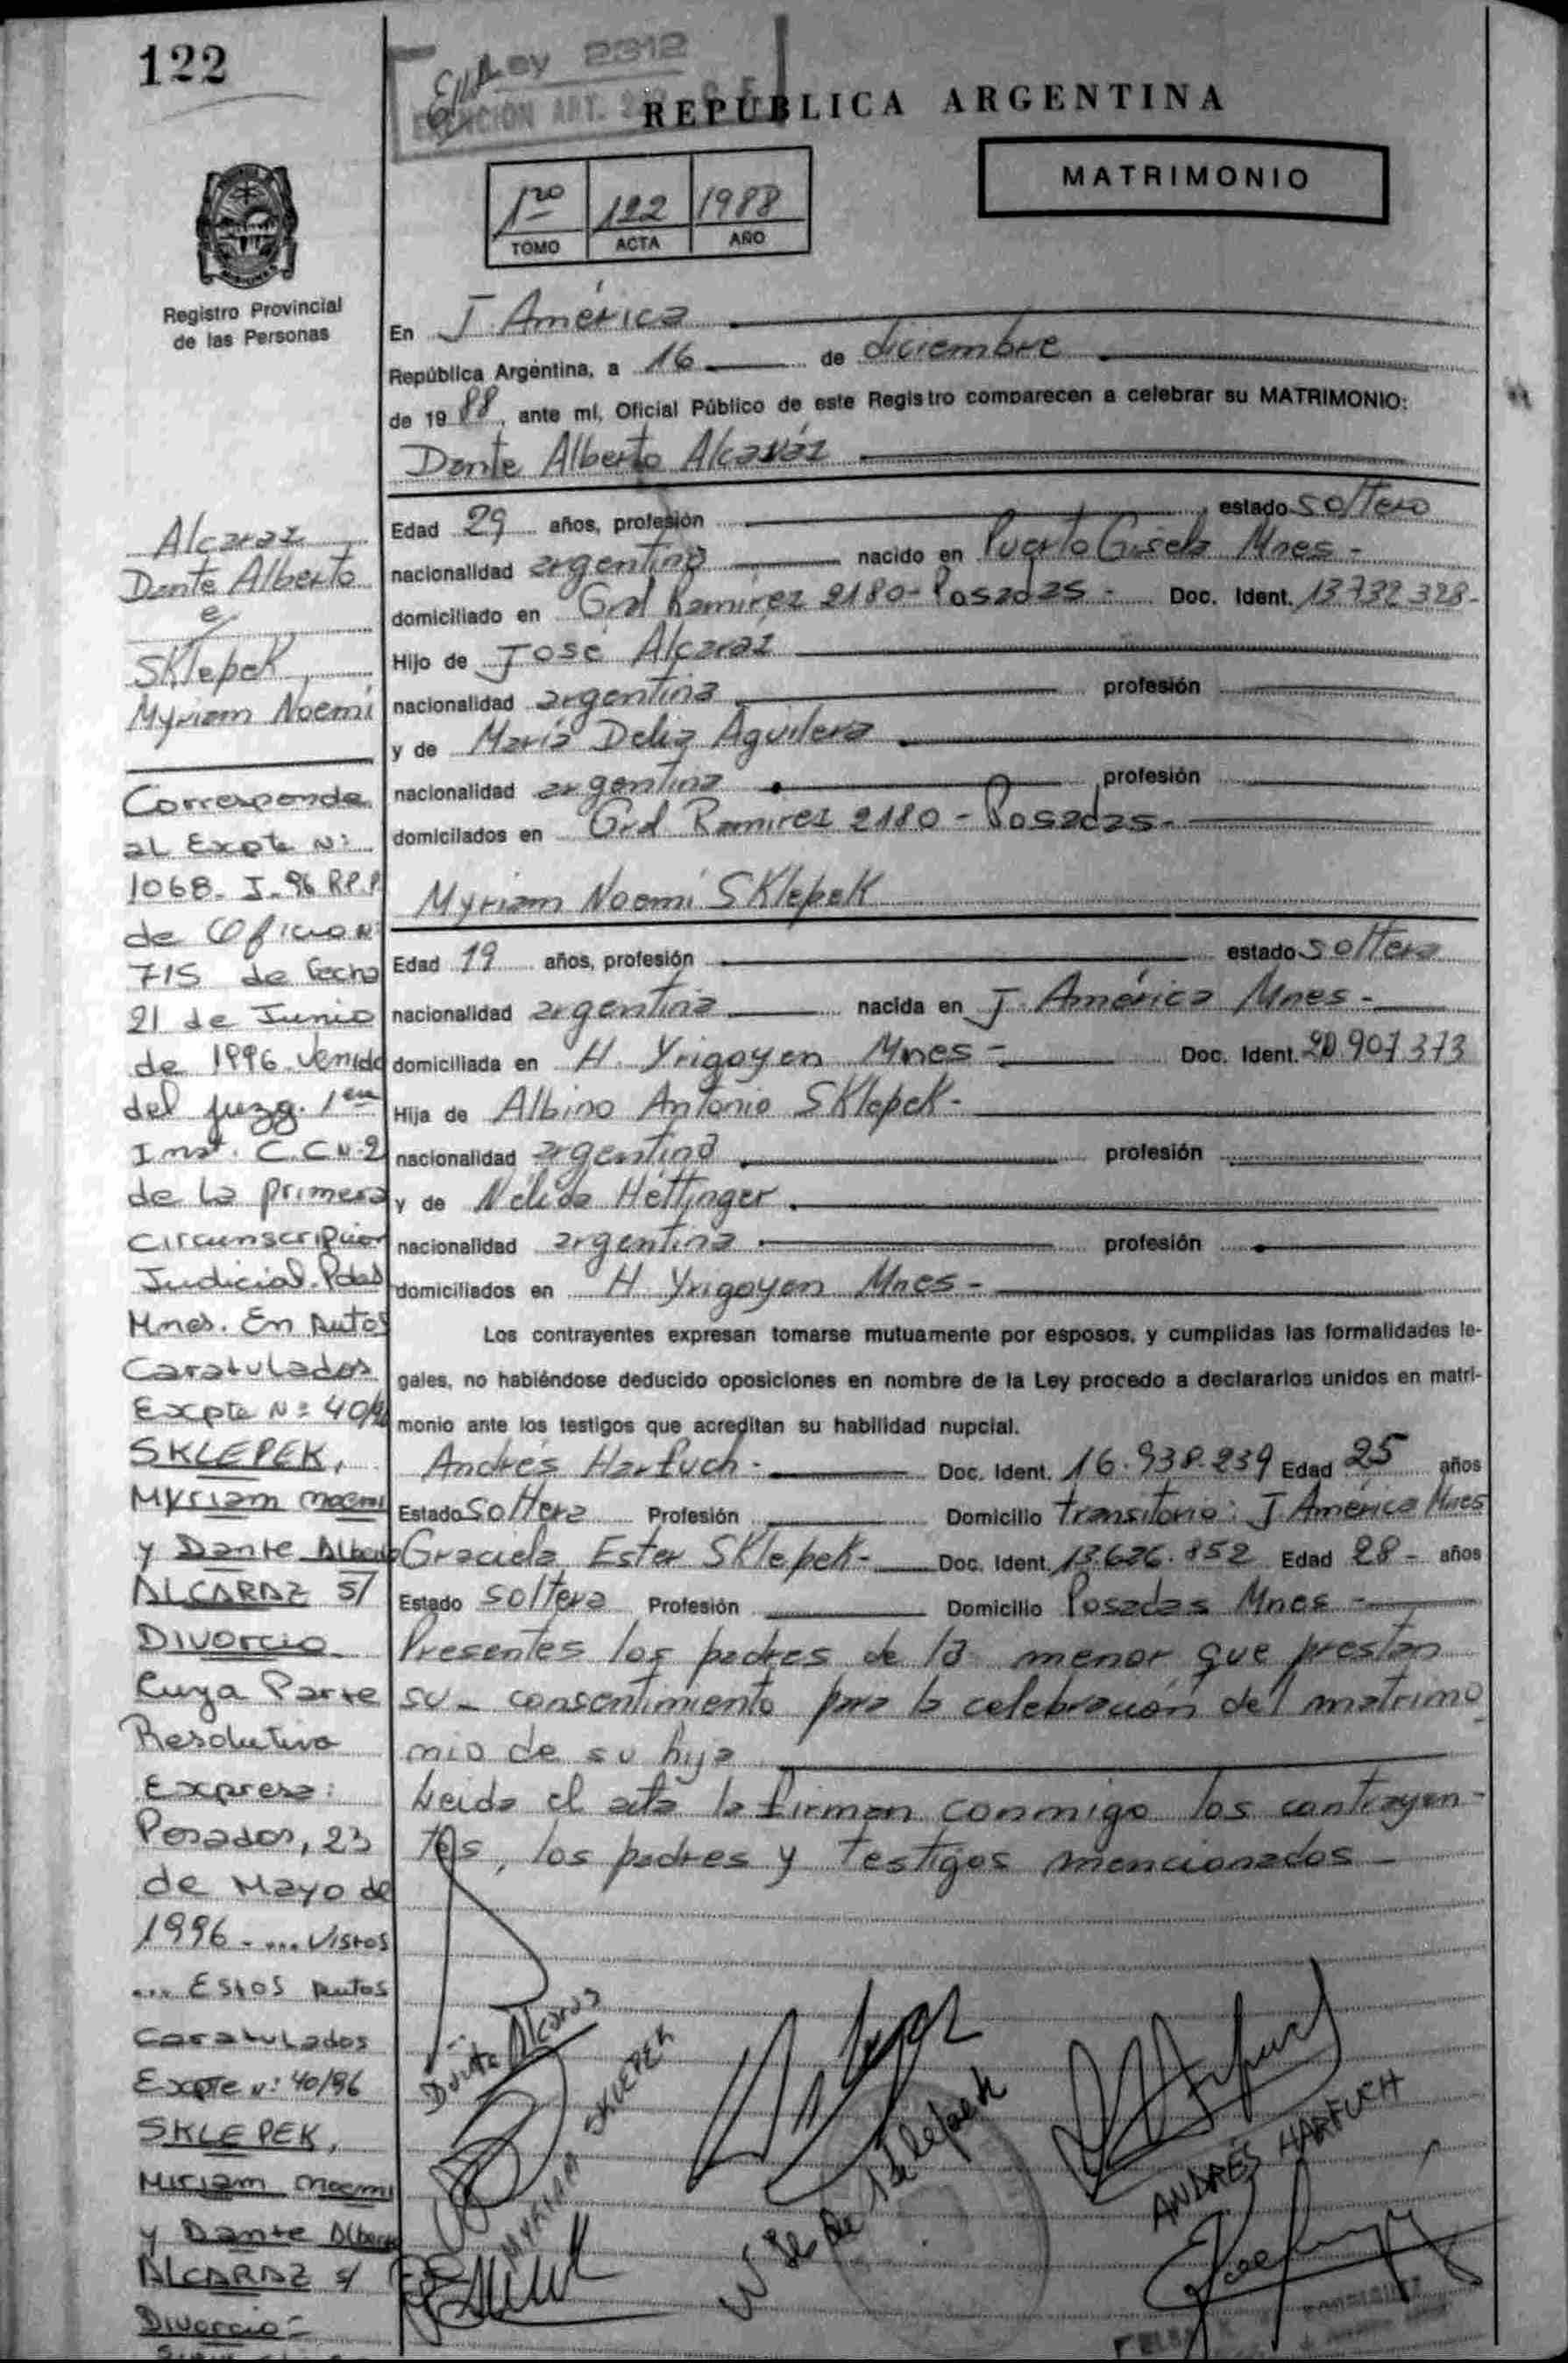 122
Ley 2312
REPUBLICA ARGENTINA
MATRIMONIO
1ro 122 1988
TOMO ACTA AÑO
Registro Provincial
de las Personas
En J. América
República Argentina, a 16 de diciembre
de 1988, ante mí, Oficial Público de este Registro comparecen a celebrar su MATRIMONIO:
Dante Alberto Alcaráz
Edad 29 años, profesión estado soltero
nacionalidad argentina nacido en Puerto Gisela Mnes-
domiciliado en Gral Ramirez 2180-Posadas- Doc. Ident. 13.732.328-
Hijo de José Alcaraz
nacionalidad argentina profesión
y de María Delia Aguilera
nacionalidad argentina profesión
domicilados en Gral Ramirez 2180-Posadas-
Myriam Noemí SKlepeK
Edad 19 años, profesión estado soltera
nacionalidad argentina nacida en J. América Mnes-
domiciliada en H. Yrigoyen Mnes- Doc. Ident. 20.907.373
Hija de Albino Antonio SKlepeK-
nacionalidad argentina profesión
y de Nélida Hettinger
nacionalidad argentina profesión
domiciliados en H. Yrigoyen Mnes-
Los contrayentes expresan tomarse mutuamente por esposos, y cumplidas las formalidades le-
gales, no habiéndose deducido oposiciones en nombre de la Ley procedo a declararlos unidos en matri-
monio ante los testigos que acreditan su habilidad nupcial.
Andrés Harfuch- Doc. Ident. 16.938.239 Edad 25 años
Estado soltera Profesión Domicilio transitorio: J. América Mnes
Graciela Ester SKlepeK- Doc. Ident. 13.626.852 Edad 28- años
Estado soltera Profesión Domicilio Posadas Mnes-
Presentes los padres de la menor que prestan
su- consentimiento para la celebración del matrimo
nio de su hija
Leida el acta la firman conmigo los contrayen-
tes, los padres y testigos mencionados-
Alcaraz
Dante Alberto
e/
SKlepeK,
Myriam Noemí
Corresponde
al Expte N:
1068-I-96 R.P.P.
de Oficio N:
715 de fecha
21 de Junio
de 1996 venido
del juzg. 1era
Inst. C.C N.2
de la primera
Circunscripcion
Judicial-Pdas
Mnes. En Autos
Caratulados
Expte N: 40/96
SKLEPEK,
Myriam Noemi
y Dante Alberto
ALCARAZ S/
DIVORCIO
Cuya Parte
Resolutiva
Expresa:
Posadas, 23
de Mayo de
1996-... Vistos
... Estos Autos
Caratulados
Expte N: 40/96
SKLEPEK,
Miriam Noemi
y Dante Alberto
ALCARAZ s/
Divorcio-
Dante Alcaraz
MYRIAM SKLEPEK
ANDRÉS HARFUCH